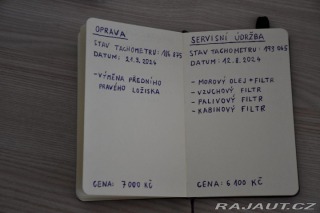 OPRAVA
STAV TACHOMETRU: 186 875
DATUM: 21.5.2024
- VÝMĚNA PŘEDNÍHO
PRAVÉHO LOŽISKA
CENA: 7 000 KČ
SERVISNÍ ÚDRŽBA
STAV TACHOMETRU: 193 065
DATUM: 12.8.2024
- MOTOROVÝ OLEJ + FILTR
- VZUCHOVÝ FILTR
- PALIVOVÝ FILTR
- KABINOVÝ FILTR
CENA: 6 100 KČ
RAJAUT.CZ